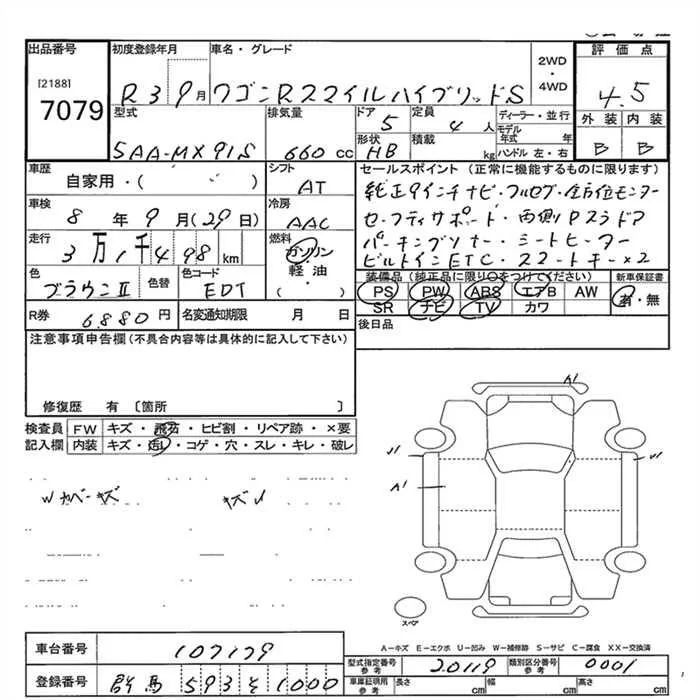 出品番号 初度登録年月 車名・グレード 2WD・4WD 評価点
[2188]
7079 R3 9月 ワゴンRスマイルハイブリッドS 4.5
型式 排気量 ドア 5 定員 4人 ディーラー・並行 外装 内装
モデル年式 年
5AA-MX91S 660cc 形状 HB 積載 kg ハンドル 左・右 B B
車歴 シフト セールスポイント(正常に機能するものに限ります)
自家用・( ) AT 純正9インチナビ・フルセグ・全方位モニター
車検 冷房 セーフティサポート・両側Pスラドア
8年9月(29日) AAC パーキングソナー・シートヒーター
走行 3万1千498km 燃料 ガソリン・軽油・( ) ビルトインETC・スマートキー×2
色 色替 色コード 装備品(純正品に限り○をつけてください) 新車保証書
ブラウンⅡ EDT PS PW ABS エアB AW 有・無
R券 6.880円 名変通知期限 月 日 SR ナビ TV カワ
後日品
注意事項申告欄(不具合内容等は具体的に記入して下さい)
修復歴 有〔箇所 〕
検査員 FW キズ・飛石・ヒビ割・リペア跡・×要
記入欄 内装 キズ・汚レ・コゲ・穴・スレ・キレ・破レ
A1
U1 U1
A1
Wカバーキズ キズU
スペア
A―キズ E―エクボ U―凹み W―補修跡 S―サビ C―腐食 XX―交換済
車台番号 107179 型式指定番号 参考 20119 類別区分番号 参考 0001
登録番号 群馬 593 そ 1000 車庫証明用 参考 長さ cm 幅 cm 高さ cm